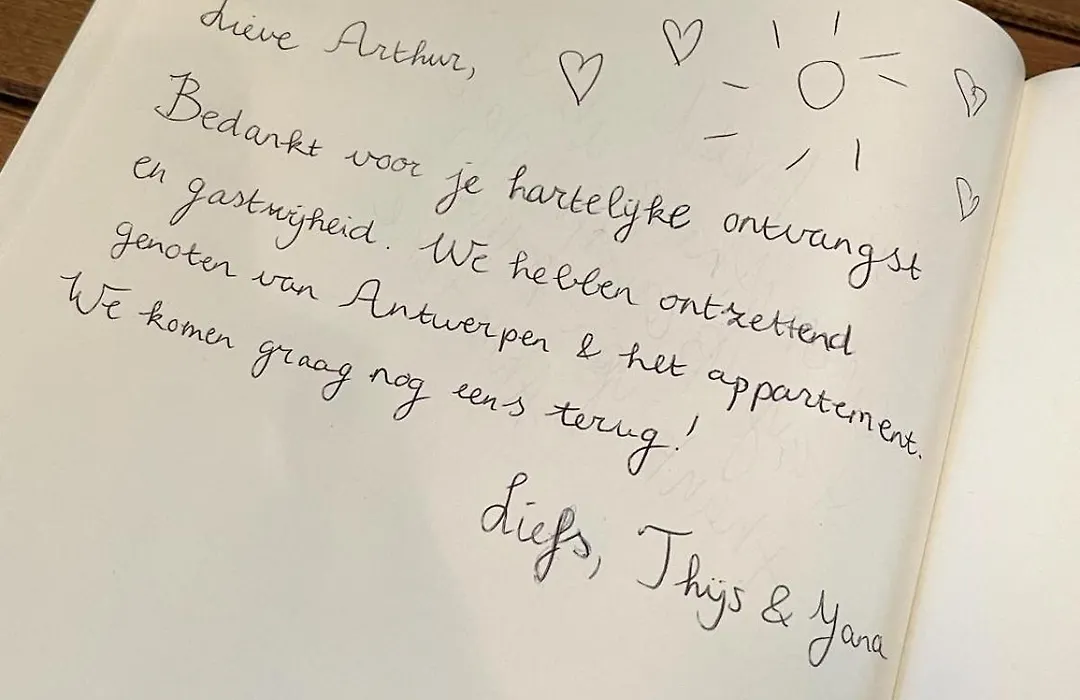 Lieve Arthur,
Bedankt voor je hartelijke ontvangst
en gastvrijheid. We hebben ontzettend
genoten van Antwerpen & het appartement.
We komen graag nog eens terug!
Liefs, Thijs & Yana